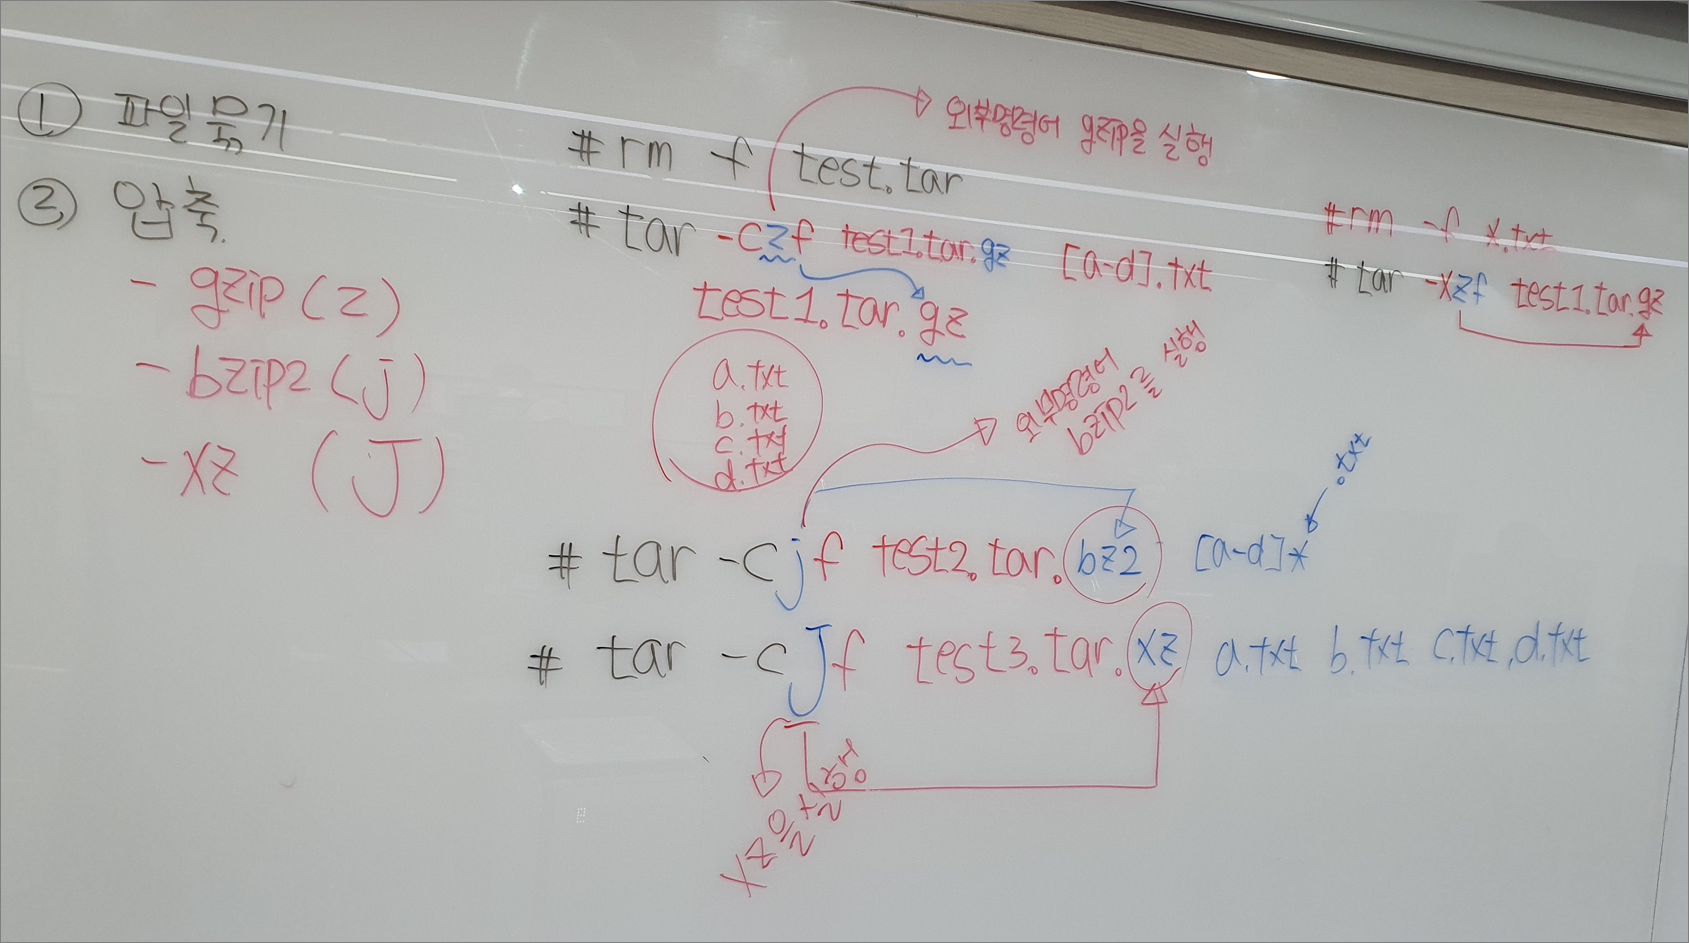 ① 파일묶기
② 압축
- gzip (z)
- bzip2 (j)
- xz (J)
외부명령어 gzip을 실행
# rm -f test.tar
# tar -czf test1.tar.gz [a-d].txt
test1.tar.gz
a.txt
b.txt
c.txt
d.txt
외부명령어
bzip2를 실행
.txt
# tar -cjf test2.tar.bz2 [a-d]*
# tar -cJf test3.tar.xz a.txt b.txt c.txt, d.txt
xz을 실행
# rm -f *.txt
# tar -xzf test1.tar.gz